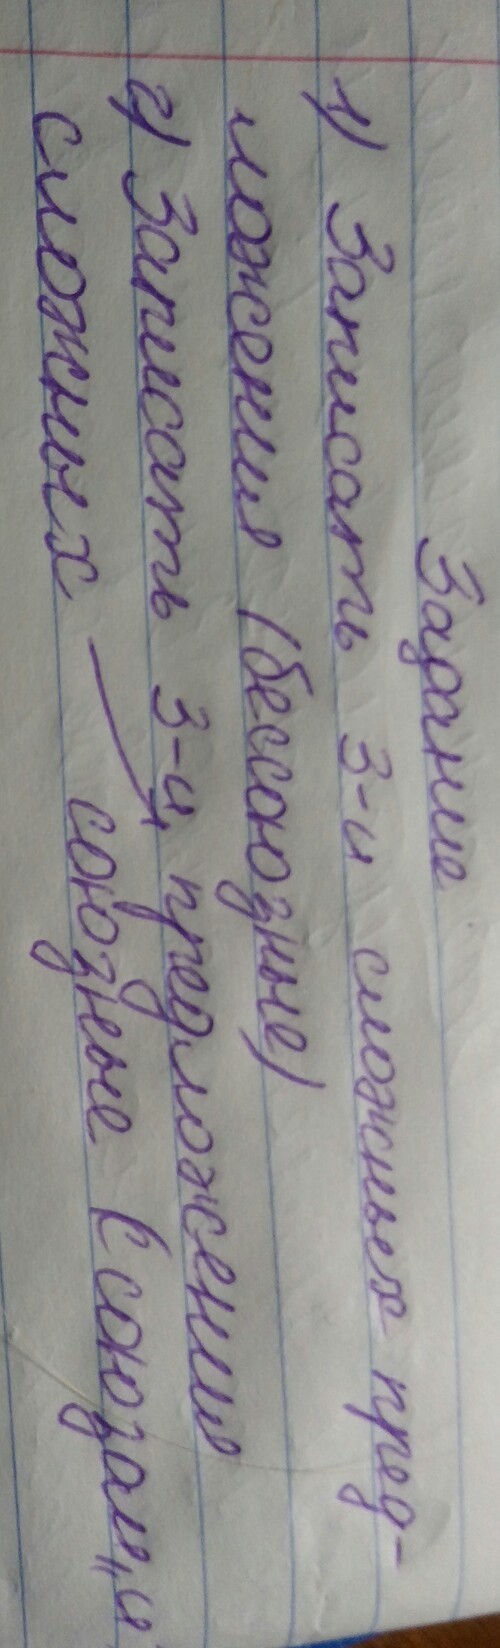 Задание
1) Записать 3-и сложных пред-
ложения (бессоюзные)
2) Записать 3-и предложения
сложных союзные (союзам „и